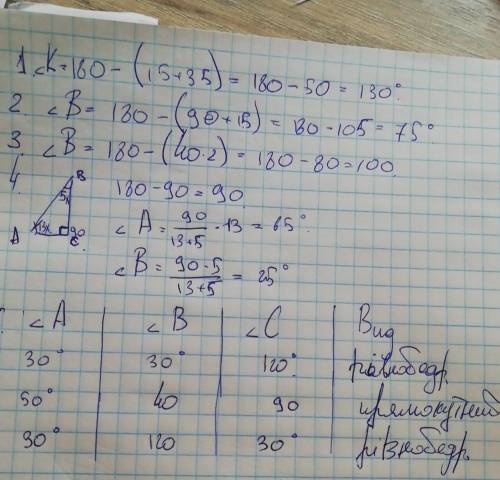 1 ∠K = 180 - (15+35) = 180 - 50 = 130°.
2 ∠B = 180 - (90+15) = 180 - 105 = 75°.
3 ∠B = 180 - (40·2) = 180 - 80 = 100.
4. B 5x A 13x 90 C
180 - 90 = 90.
∠A = 90/13+5 · 13 = 65°.
∠B = 90·5/13+5 = 25°
∠A ∠B ∠C Вид
30° 30° 120° рівнобедр.
50° 40 90 прямокутний
30° 120 30° рівнобедр.